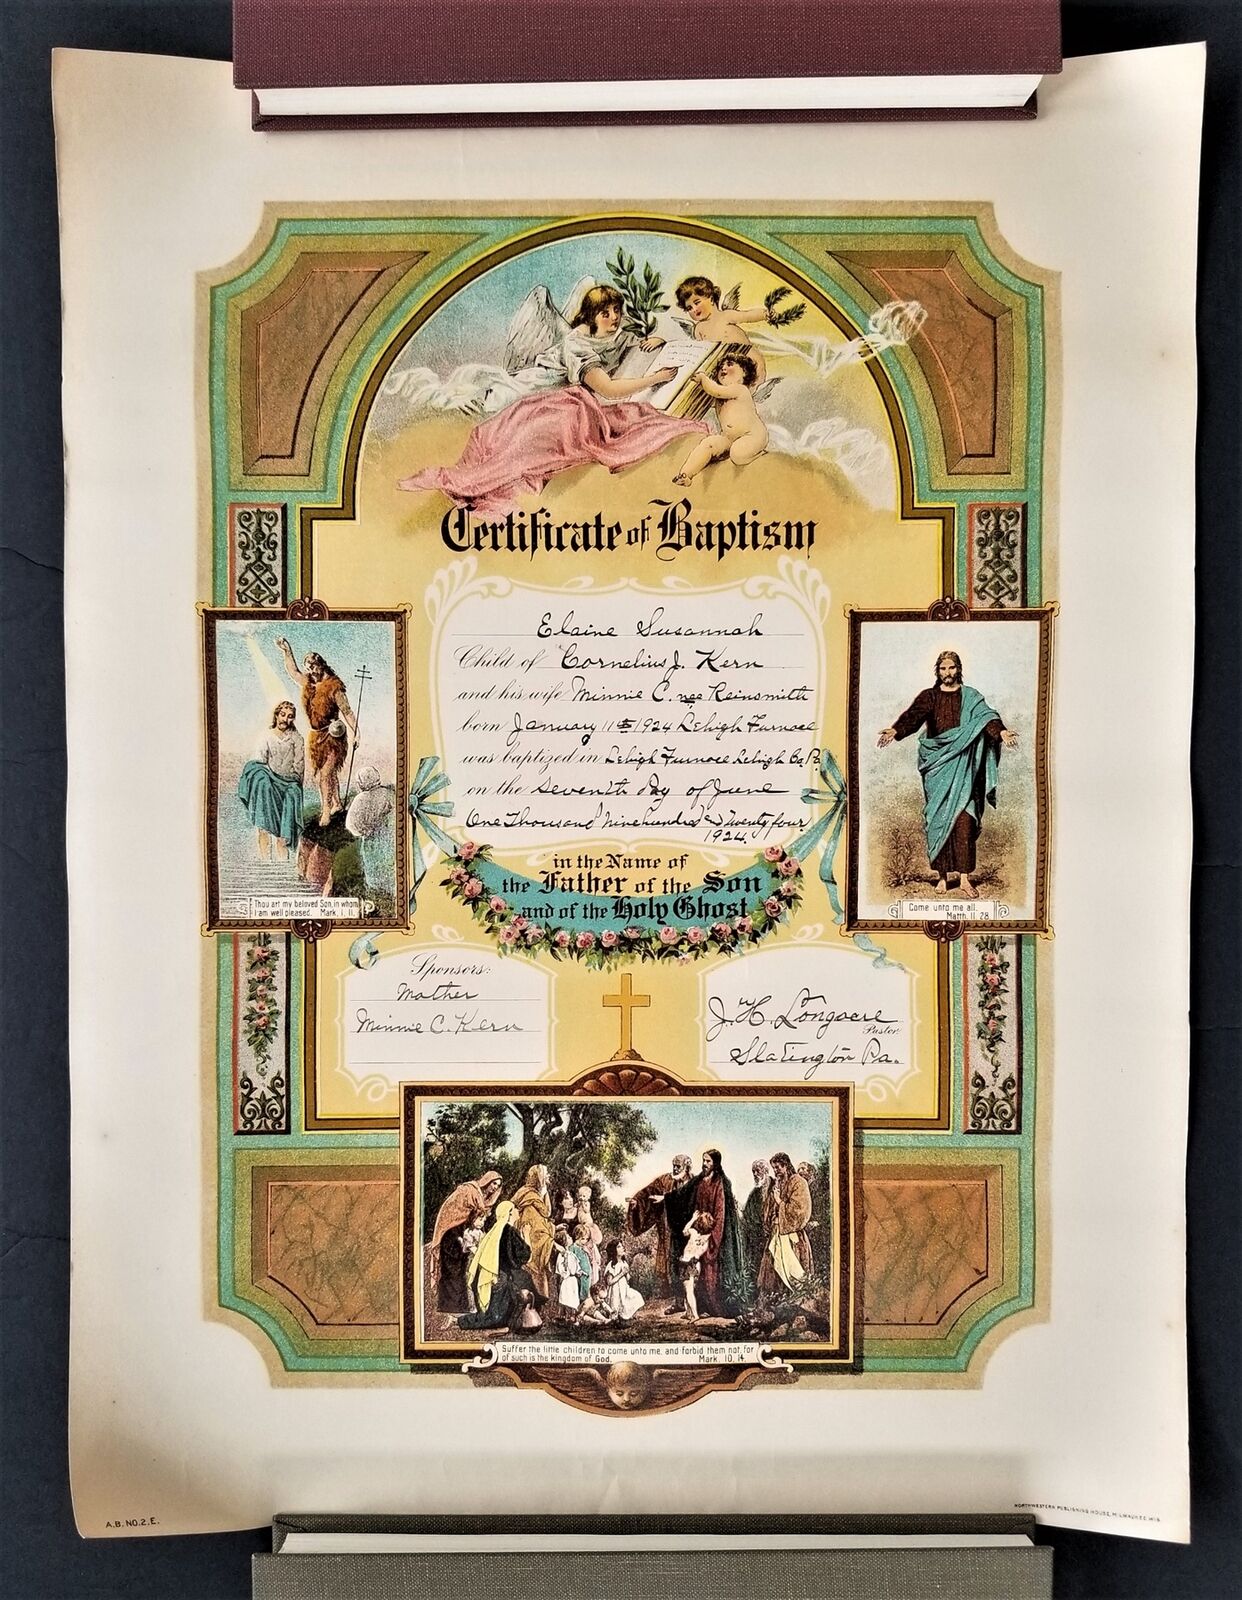 Certificate of Baptism
Elaine Susannah
Child of Cornelius J. Kern
and his wife Minnie C. nee Reinsmith
born January 11th 1924 Lehigh Furnace
was baptized in Lehigh Furnace Lehigh Co, Pa
on the Seventh Day of June
One Thousand Nine hundred and Twenty four
1924.
in the Name of
the Father of the Son
and of the Holy Ghost
Thou art my beloved Son, in whom
I am well pleased. Mark, 1, 11.
Come unto me all.
Matth. 11. 28.
Sponsors:
Mother
Minnie C. Kern
J. H. Longacre
Pastor
Slatington Pa.
Suffer the little children to come unto me, and forbid them not, for
of such is the kingdom of God. Mark. 10, 14.
A.B. NO. 2. E.
NORTHWESTERN PUBLISHING HOUSE, MILWAUKEE WIS